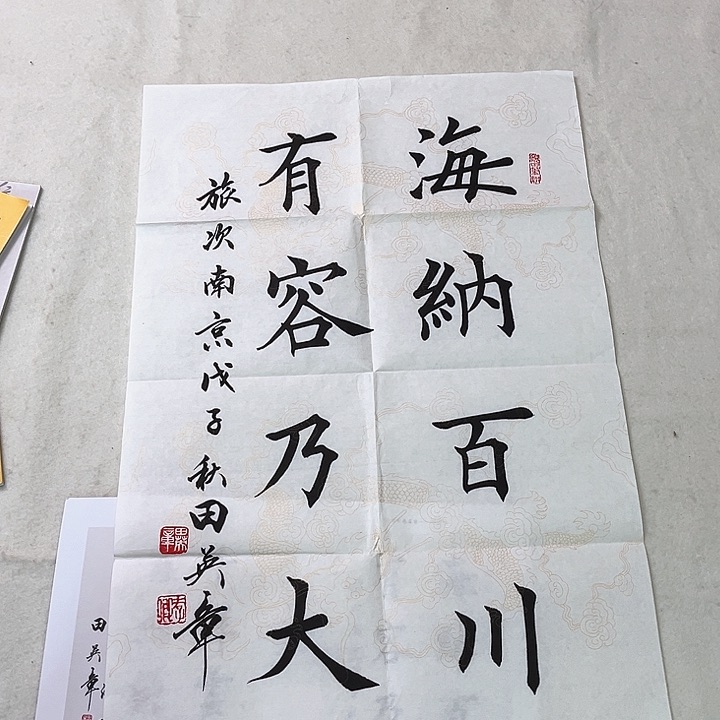 海納百川
有容乃大
旅次南京戊子秋田英章
田英章